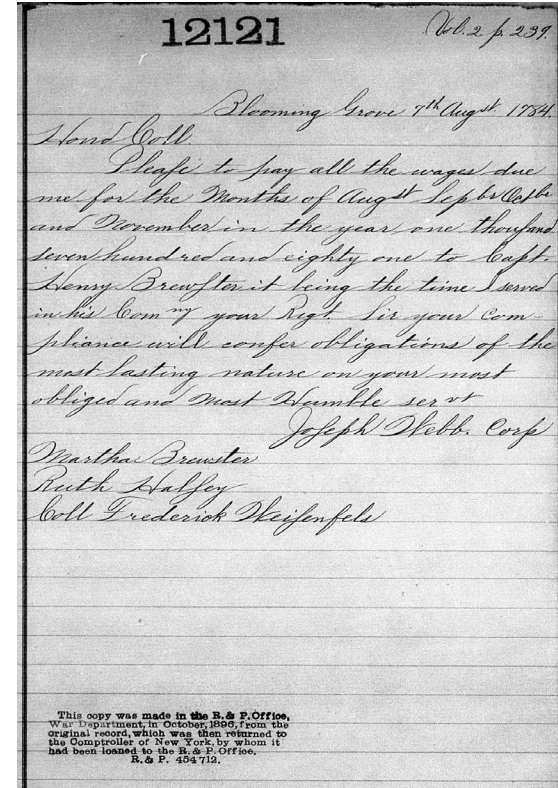 12121
Vol. 2 p. 239.
Blooming Grove 7th Augst. 1784.
Hond Coll.
Pleaſe to pay all the wages due
me for the Months of Augst Sepbr Octbr
and November in the year one thouſand
seven hundred and eighty one to Capt.
Henry Brewſter it being the time I served
in his Comny your Regt. Sir your com-
pliance will confer obligations of the
most lasting nature on your most
obliged and Most Humble servt
Joſeph Webb. Corp
Martha Brewster
Ruth Halſey
Coll Frederick Weiſenfels
This copy was made in the R. & P. Office,
War Department, in October, 1896, from the
original record, which was then returned to
the Comptroller of New York, by whom it
had been loaned to the R. & P. Office.
R. & P. 454712.